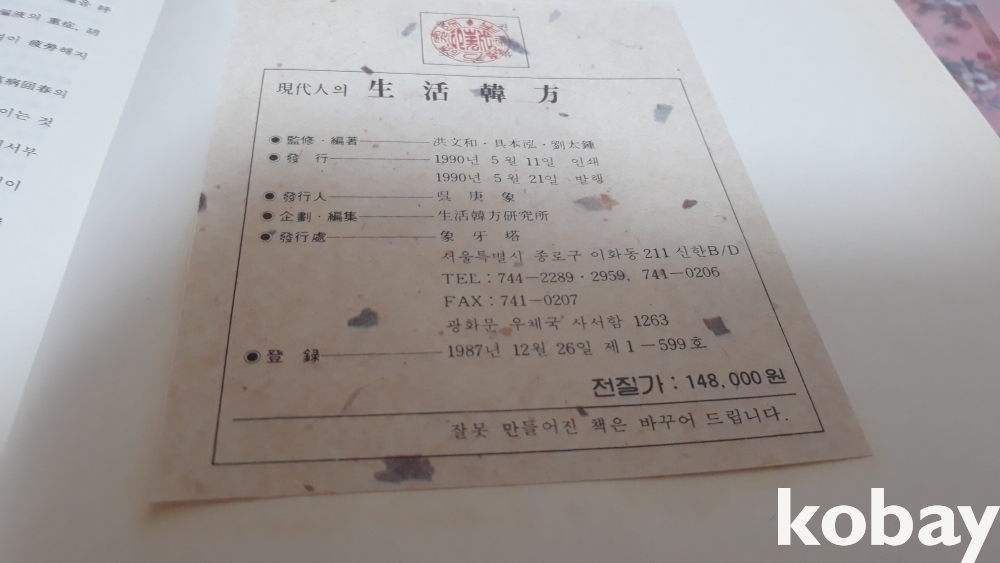 現代人의 生活韓方
● 監修·編著 洪文和·具本泓·劉太鍾
● 發行 1990년 5월 11일 인쇄
1990년 5월 21일 발행
● 發行人 吳庚象
● 企劃·編集 生活韓方研究所
● 發行處 象牙塔
서울특별시 종로구 이화동 211 신한B/D
TEL : 744-2289·2959, 741-0206
FAX : 741-0207
광화문 우체국 사서함 1263
● 登錄 1987년 12월 26일 제1-599호
전질가 : 148,000원
잘못 만들어진 책은 바꾸어 드립니다.
重症, 胡
疲勞해지
病回春의
이는 것
서부
이
kobay